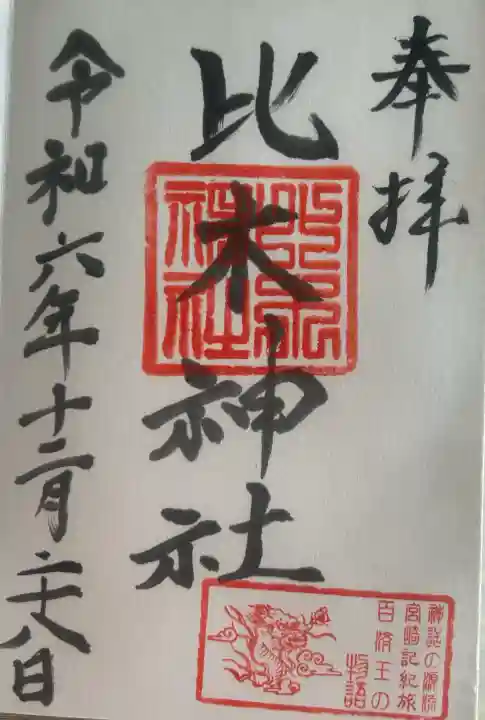 奉拝
比木神社
比木神社
令和六年十二月二十八日
神話の源流
宮崎記紀旅
百済王の
物語